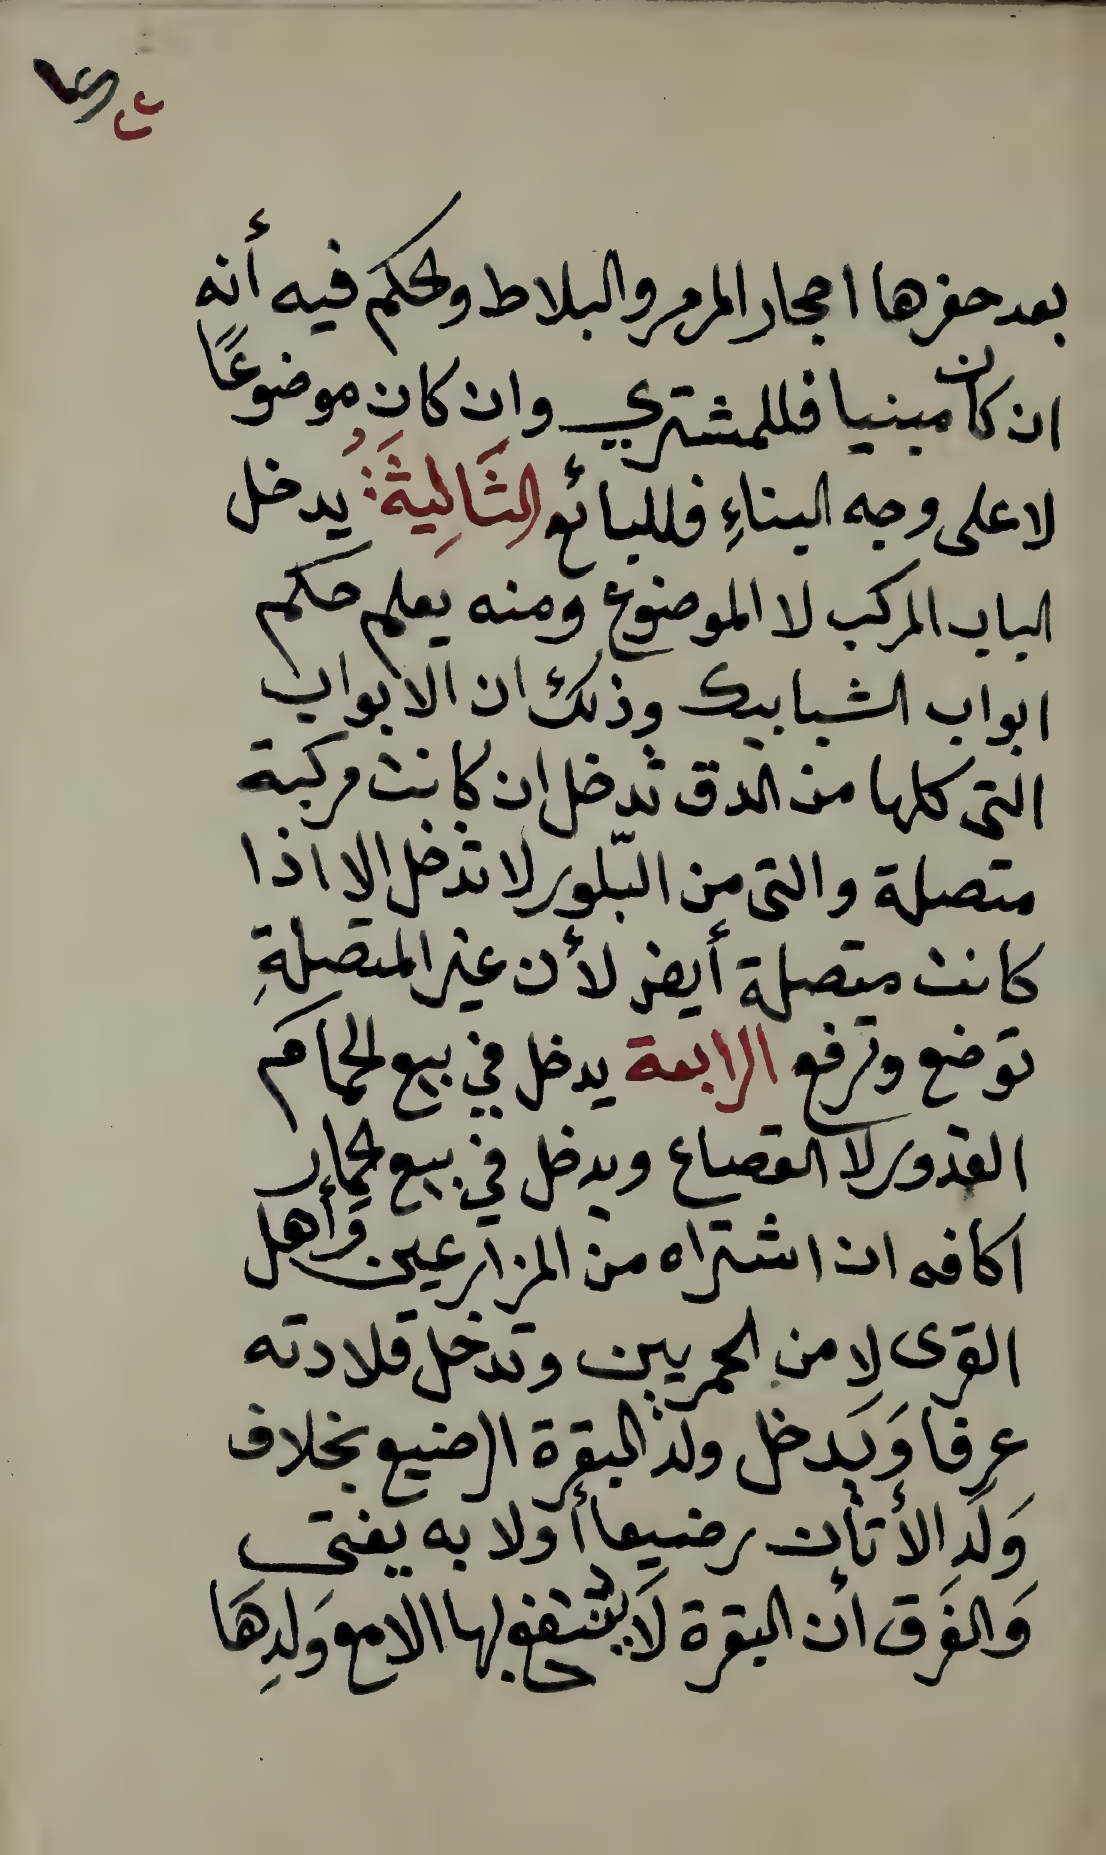 بعد حفرها احجار المرمر والبلاط والحكم فيه أنه
ان كان مبنيا فللمشتري وان كان موضوعًا
لا على وجه البناءِ فللبائع الثَالِيثَةُ يدخل
الباب المركب لا الموضوع ومنه يعلم حكم
ابواب الشبابيك وذلك ان الابواب
التى كلها من الدق تدخل ان كانت مركبة
متصلة والتى من البلّور لا تدخل الا اذا
كانت متصلة أيضا لأن غير المتصلةِ
توضع وترفع الرابعة يدخل في بيع الحمام
القدور لا القصاع ويدخل في بيع الحمار
اكافه ان اشتراه من المزارعين وأهل
القرى لا من الحمريين وتدخل قلادته
عرفا وَيَدخل ولد البقرة الرضيع بخلاف
وَلَدِ الأتان رضيعا أولا به يفتى
وَالفَرق أن البقرة لَا ينتفع بها الا مع وَلدِهَا